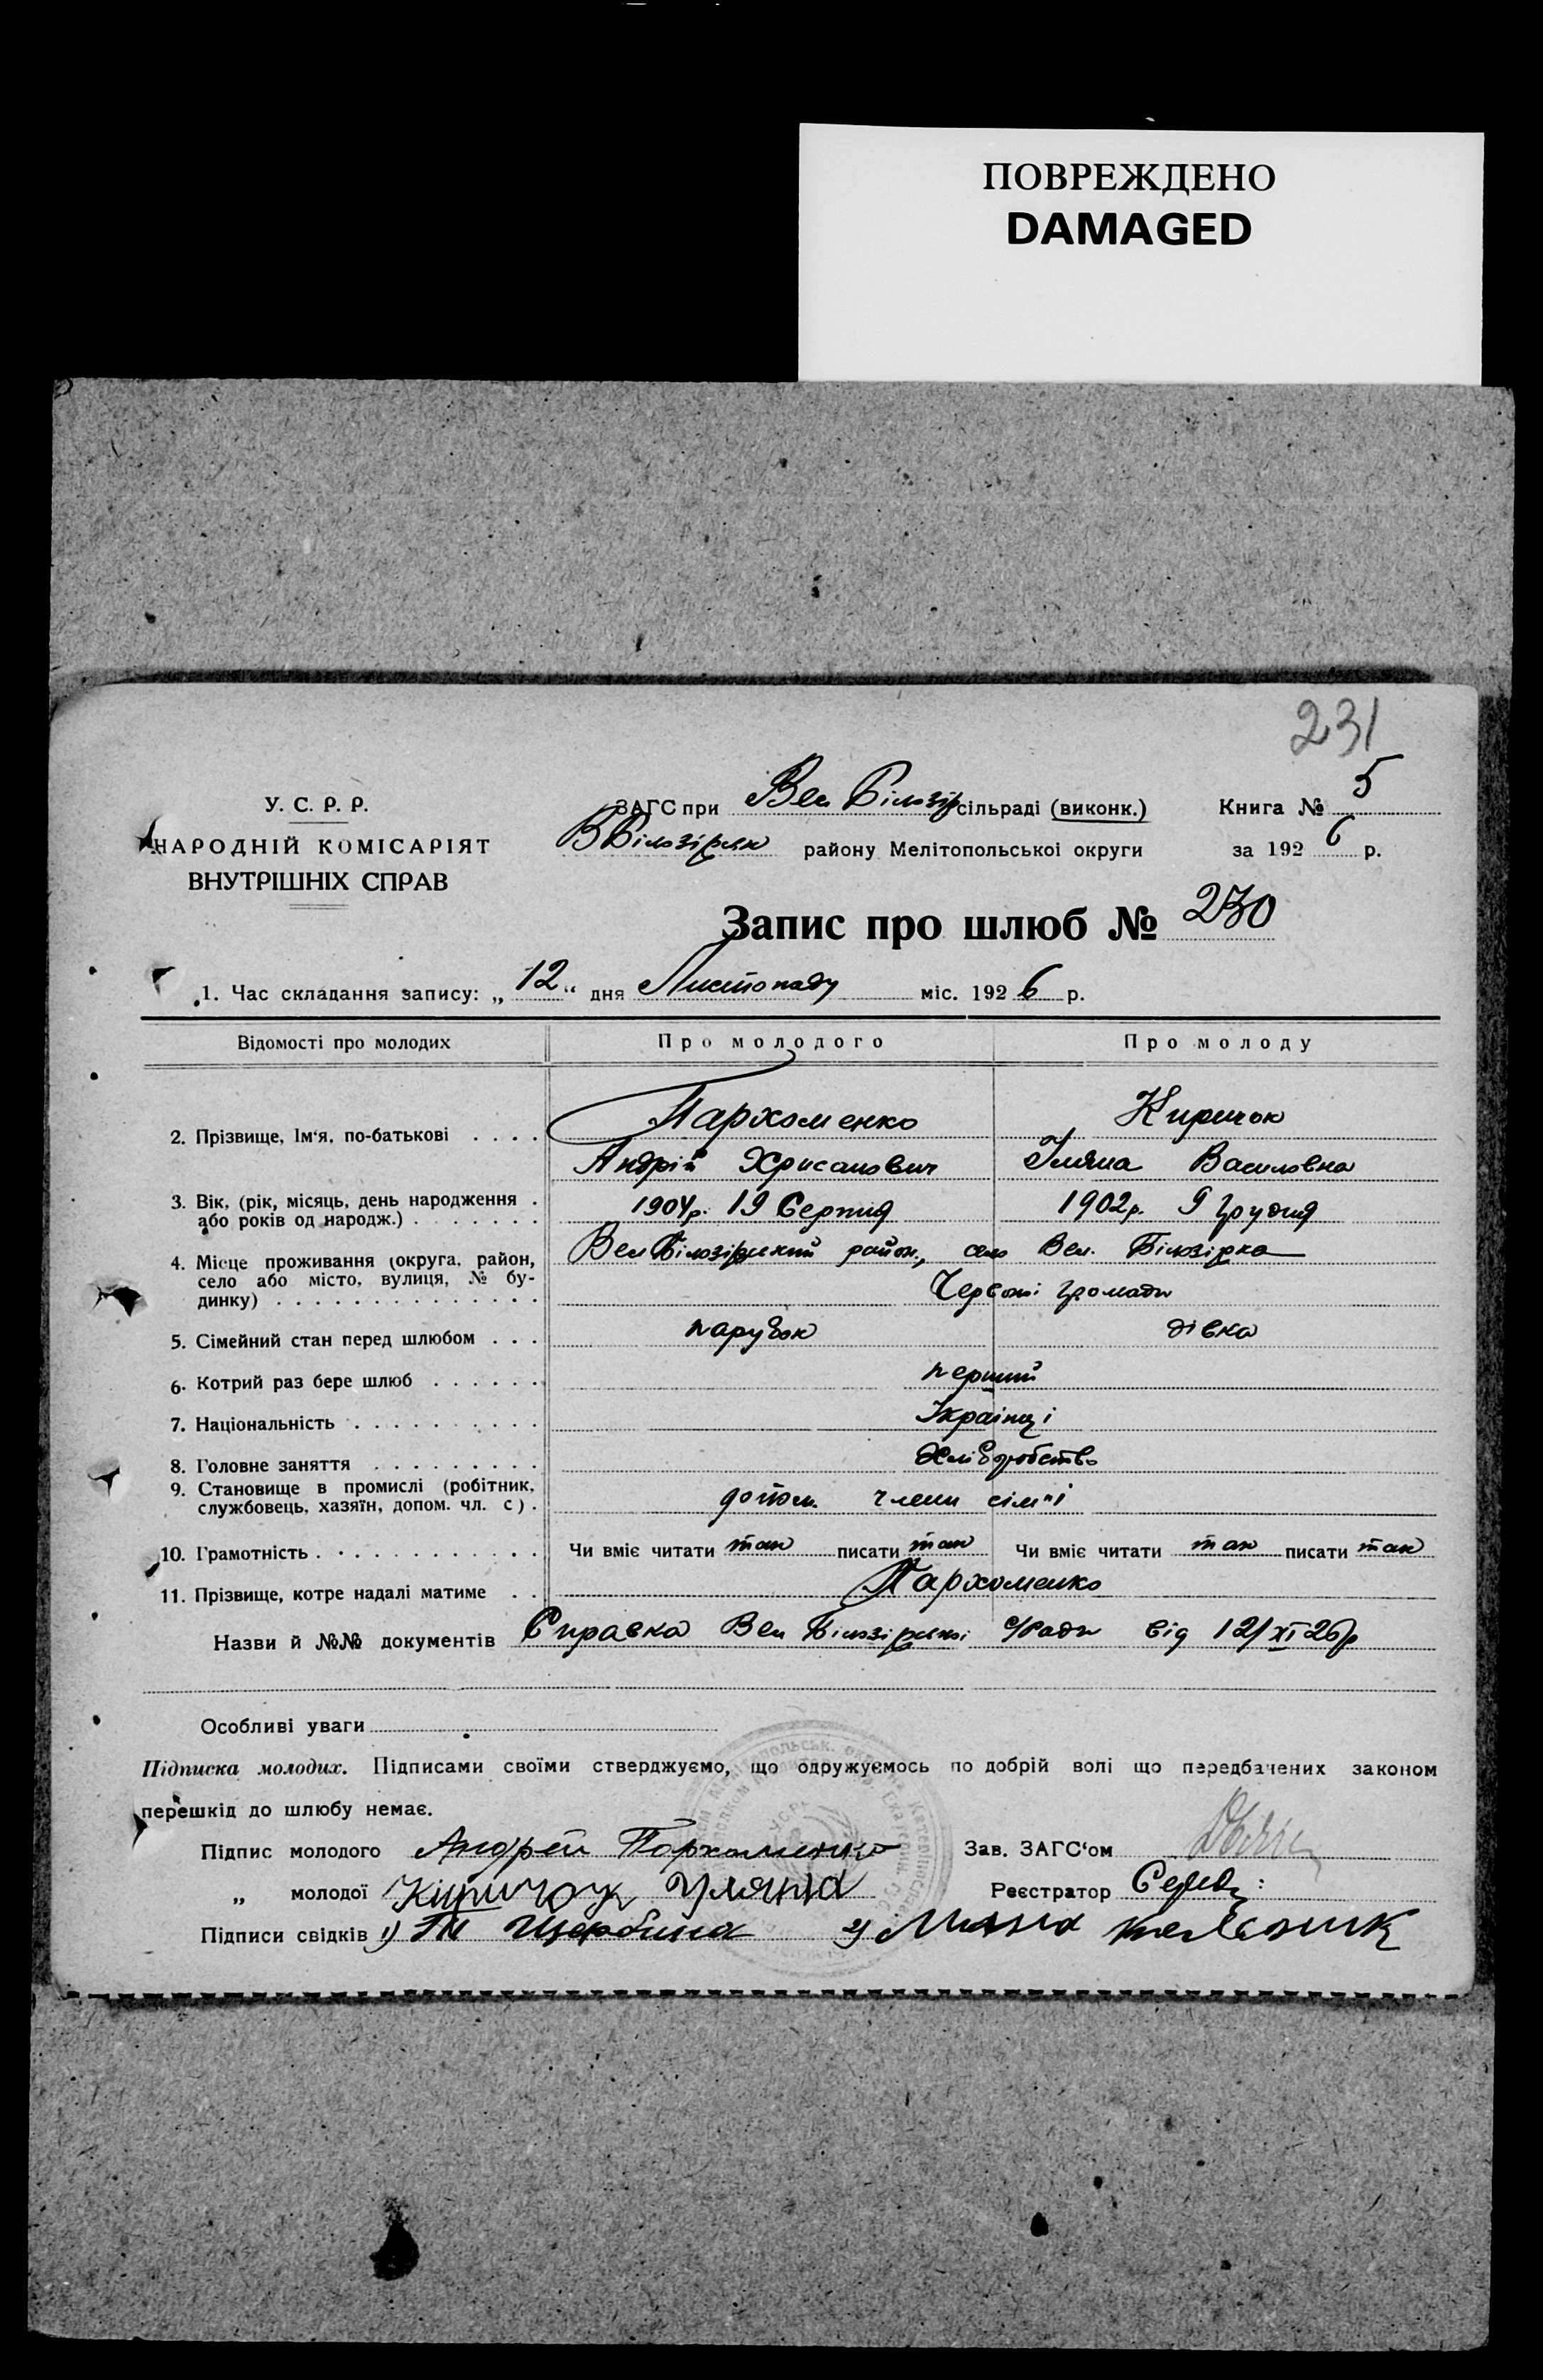 ПОВРЕЖДЕНО
DAMAGED
231
У. С. Р. Р.
НАРОДНІЙ КОМІСАРІЯТ
ВНУТРІШНІХ СПРАВ
ЗАГС при Вел Білозір сільраді (виконк.)
ВБілозірськ району Мелітопольської округи
Книга № 5
за 192 6 р.
Запис про шлюб № 230
1. Час складання запису: „ 12 “ дня Листопаду міс. 192 6 р.
Відомості про молодих Про молодого Про молоду
2. Прізвище, Ім‘я, по-батькові . . . . Пархоменко Киричок
Андрій Хрисанович Уляна Василовна
3. Вік, (рік, місяць, день народження .
або років од народж.) . . . . . . . 1904р. 19 Серпня 1902р. 9 грудня
4. Місце проживання (округа, район,
село або місто, вулиця, № бу-
динку) . . . . . . . . . . . . . .
Вел Білозірський район, село Вел. Білозірка
Червоні громади
5. Сімейний стан перед шлюбом . . . парубок дівка
6. Котрий раз бере шлюб . . . . . . перший
7. Національність . . . . . . . . . . Українці
8. Головне заняття . . . . . . . . . Хліборобство
9. Становище в промислі (робітник,
службовець, хазяїн, допом. чл. с) . допом. члени сім"ї
10. Грамотність . . . . . . . . . . . . Чи вміє читати так писати так Чи вміє читати так писати так
11. Прізвище, котре надалі матиме . . Пархоменко
Назви й №№ документів Справка Вел Білозірської с/Ради від 12/XI 26р
Особливі уваги
Підписка молодих. Підписами своїми стверджуємо, що одружуємось по добрій волі що передбачених законом
перешкід до шлюбу немає.
Підпис молодого Андрей Пархоменко Зав. ЗАГС‘ом
„ молодої Киричок Уляна Реєстратор Середа
Підписи свідків 1) Щербина 2)